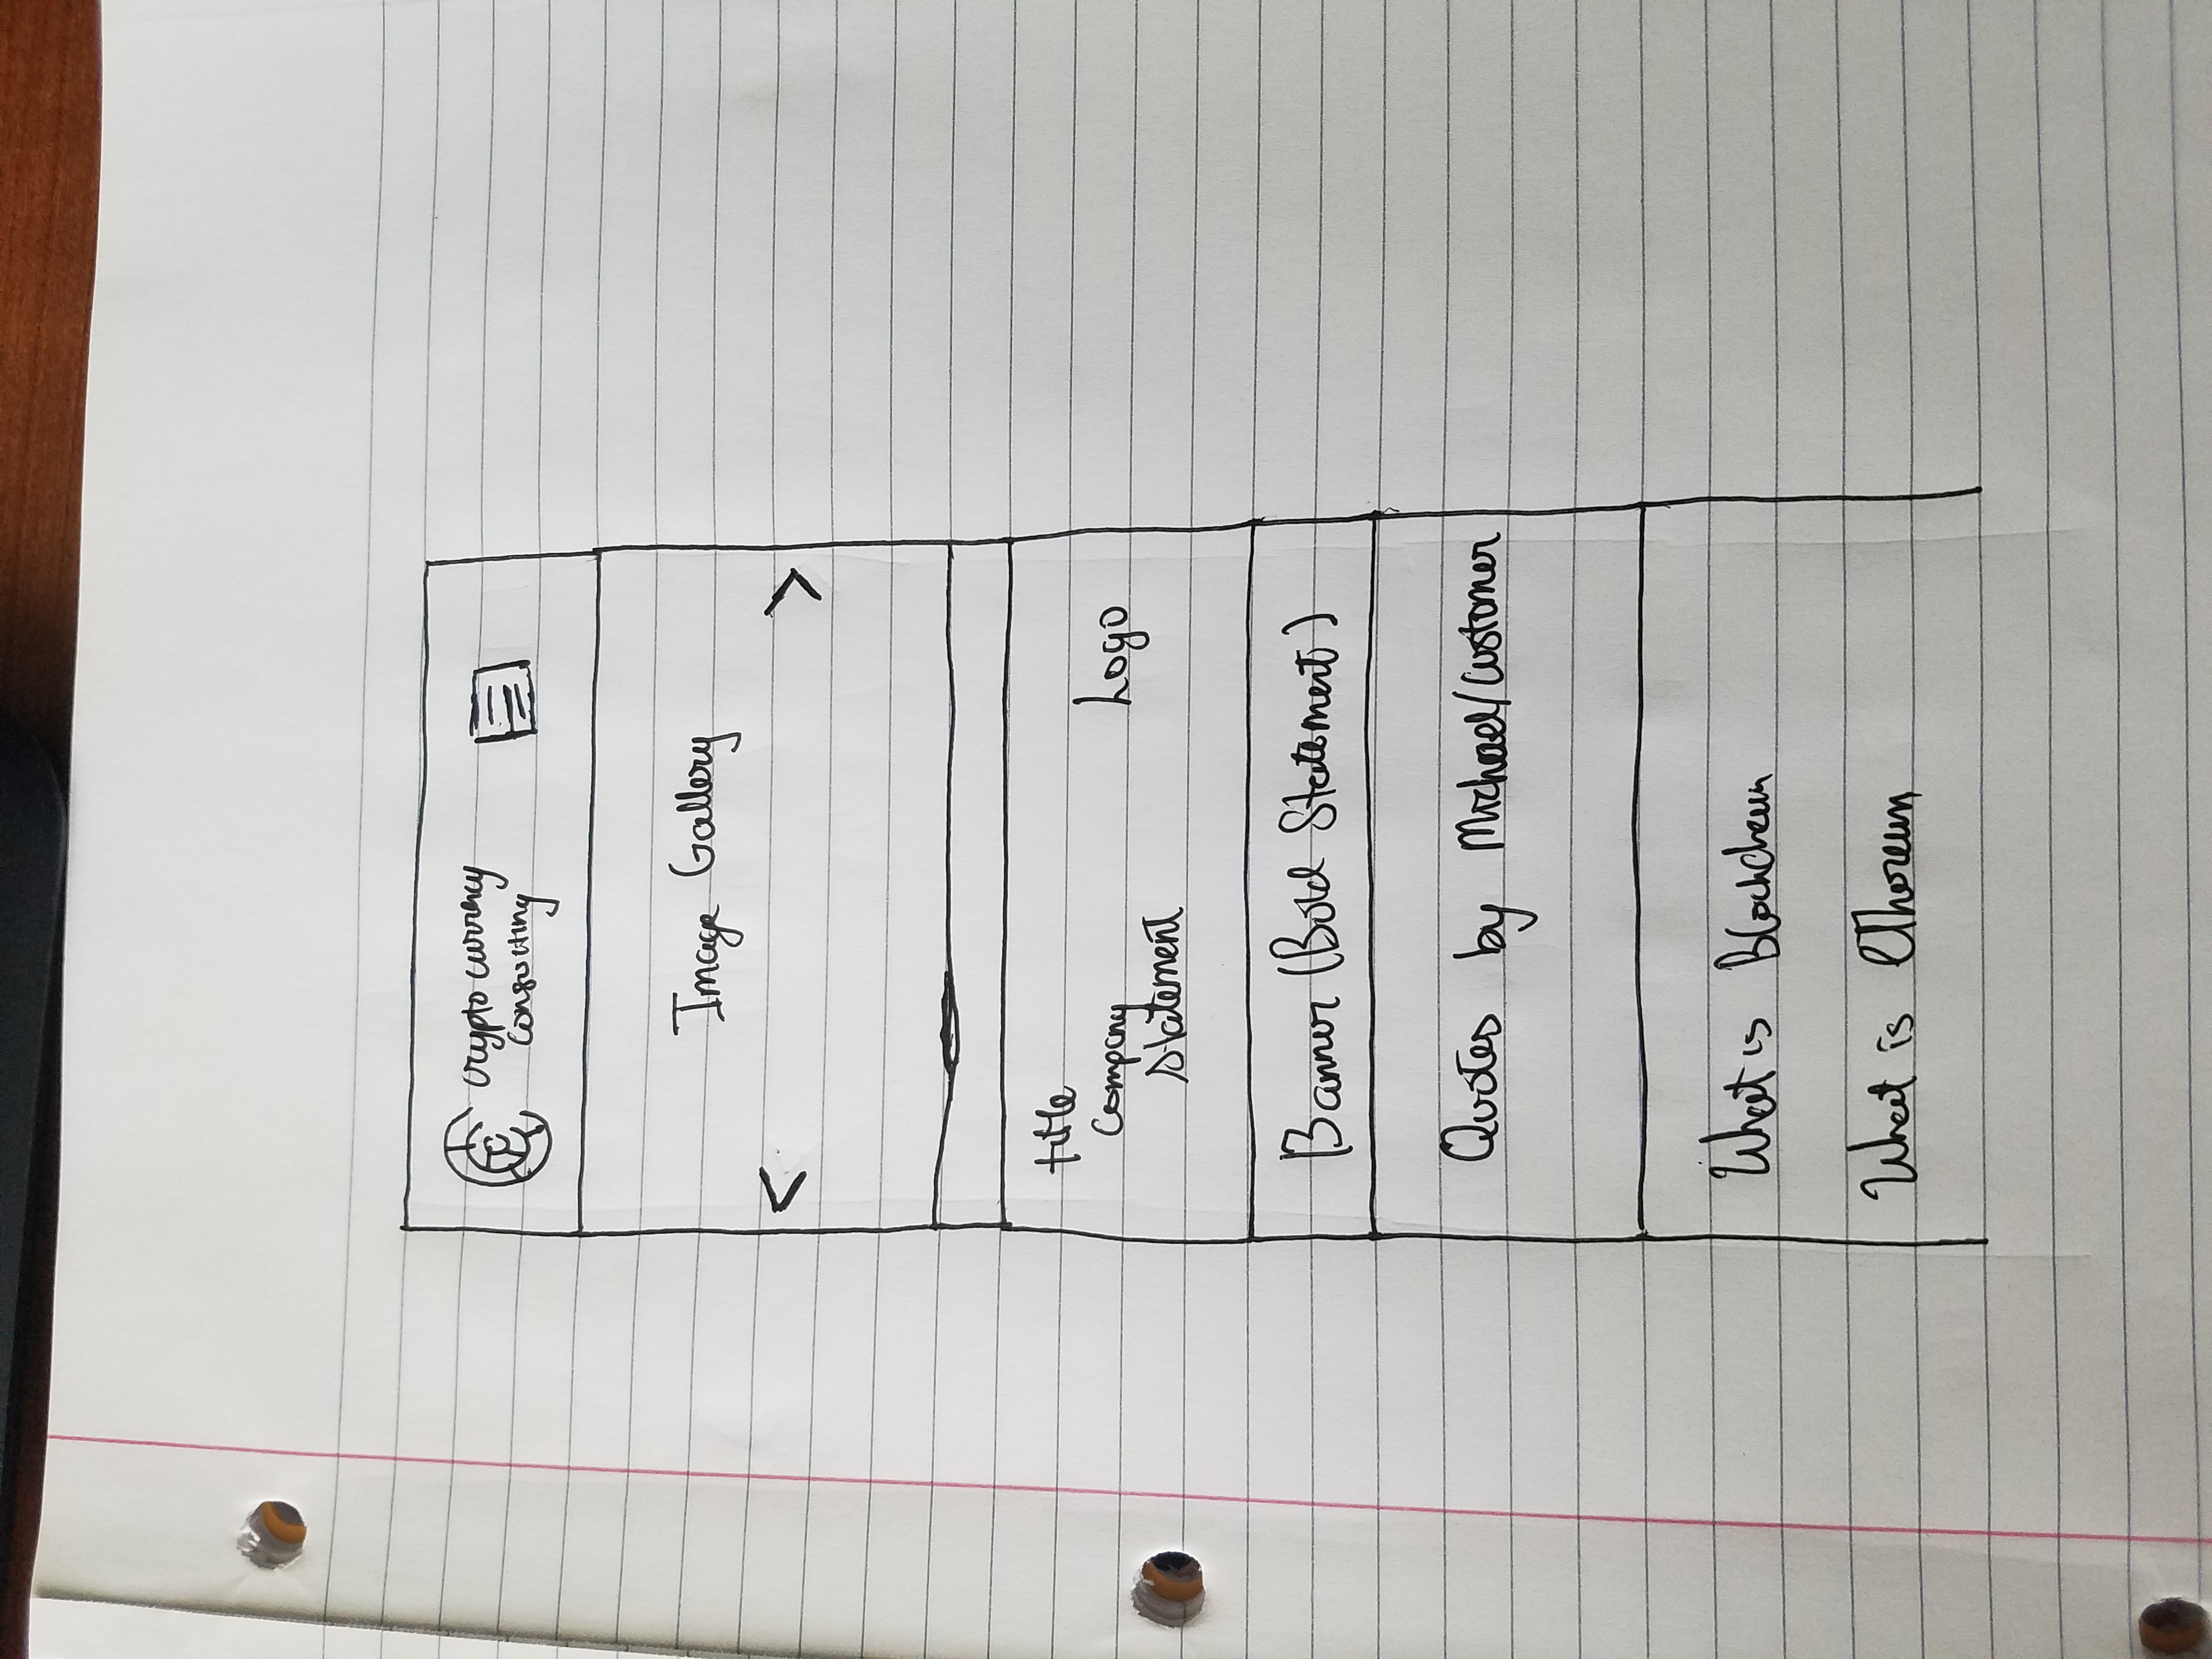 crypto currency
consulting
Image Gallery
< >
title
Company
Statement
Logo
Banner (Bold Statement)
Quotes by Michael/Customer
What is Blockchain
What is Ethereum